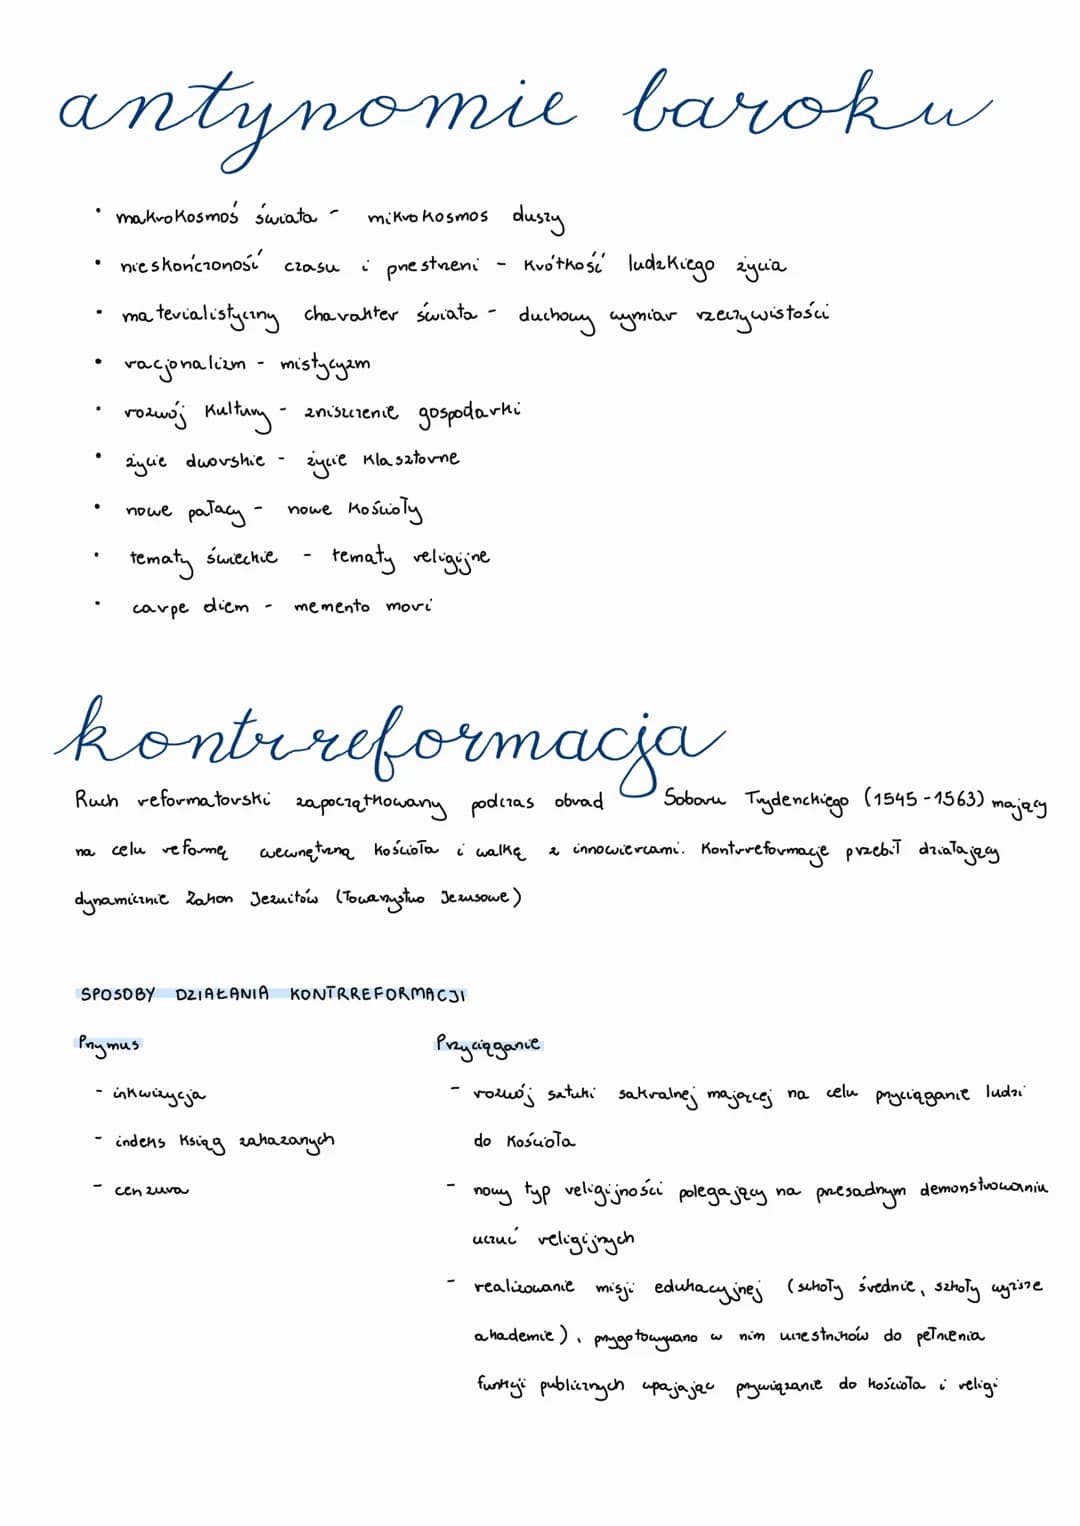 antynomie baroku
• makrokosmoś świata - mikrokosmos duszy
• nieskończoność czasu i przestrzeni - krótkość ludzkiego życia
• materialistyczny charakter świata - duchowy wymiar rzeczywistości
• racjonalizm - mistycyzm
• rozwój kultury - zniszczenie gospodarki
• życie dworskie - życie klasztorne
• nowe pałacy - nowe kościoły
• tematy świeckie - tematy religijne
• carpe diem - memento mori
kontrreformacja
Ruch reformatorski zapoczątkowany podczas obrad Soboru Trydenckiego (1545-1563) mający
na celu reformę wewnętrzną kościoła i walkę z innowiercami. Kontrreformację przebił działający
dynamicznie Zakon Jezuitów (Towarzystwo Jezusowe)
SPOSOBY DZIAŁANIA KONTRREFORMACJI
Przymus
- inkwizycja
- indeks ksiąg zakazanych
- cenzura
Przyciąganie
- rozwój sztuki sakralnej mającej na celu przyciąganie ludzi
do kościoła
- nowy typ religijności polegający na przesadnym demonstrowaniu
uczuć religijnych
- realizowanie misji edukacyjnej (szkoły średnie, szkoły wyższe
akademie), przygotowywano w nim uczestników do pełnienia
funkcji publicznych wpajając przywiązanie do kościoła i religi